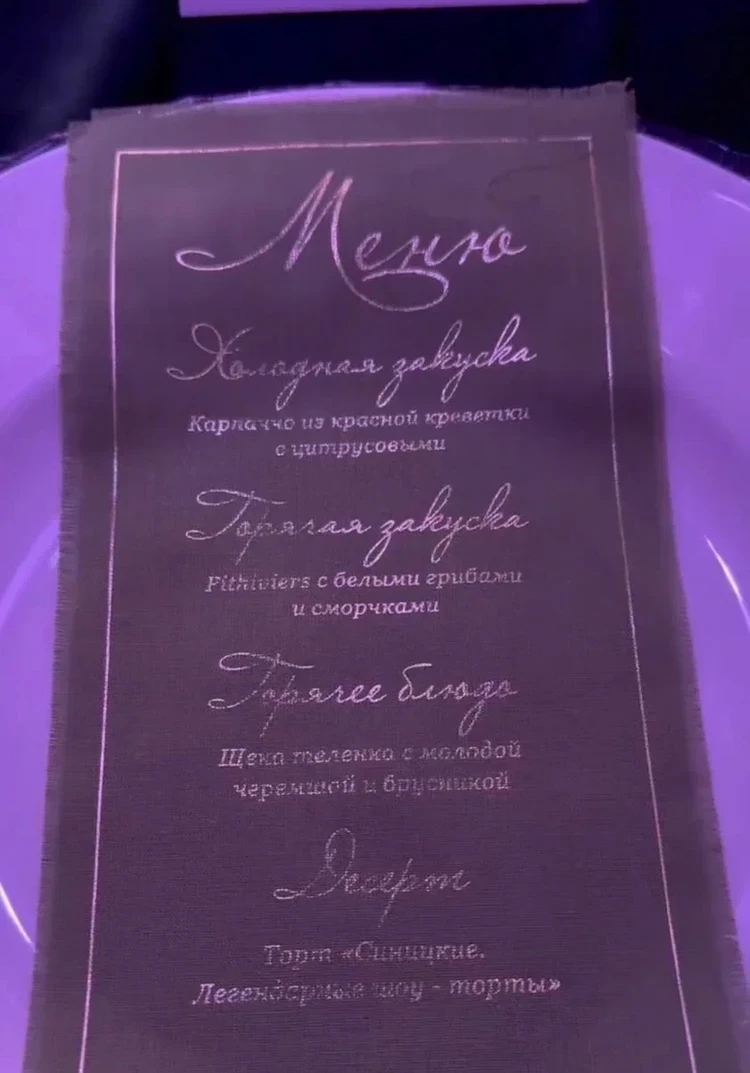 Меню
Холодная закуска
Карпаччо из красной креветки
с цитрусовыми
Горячая закуска
Pithiviers с белыми грибами
и сморчками
Горячее блюдо
Щека теленка с молодой
черемшой и брусникой
Десерт
Торт «Синицкие.
Легендарные шоу - торты»